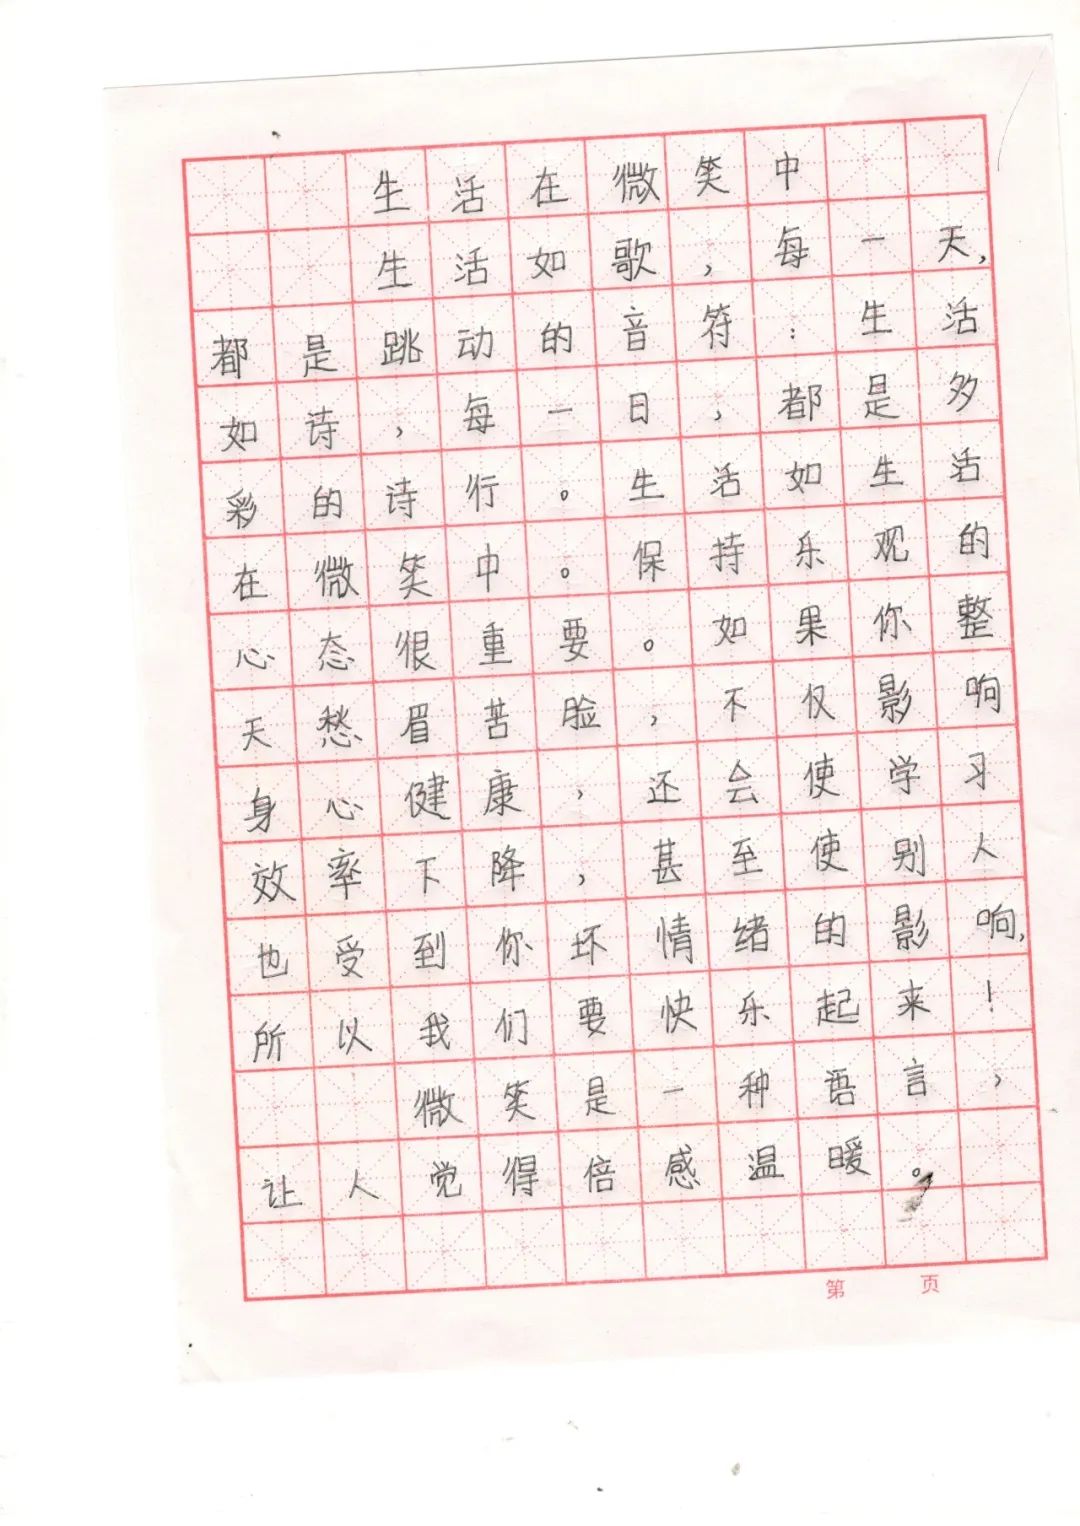 生活在微笑中
生活如歌，每一天，
都是跳动的音符：生活
如诗，每一日，都是多
彩的诗行。生活如生活
在微笑中。保持乐观的
心态很重要。如果你整
天愁眉苦脸，不仅影响
身心健康，还会使学习
效率下降，甚至使别人
也受到你坏情绪的影响，
所以我们要快乐起来！
微笑是一种语言，
让人觉得倍感温暖。
第 页